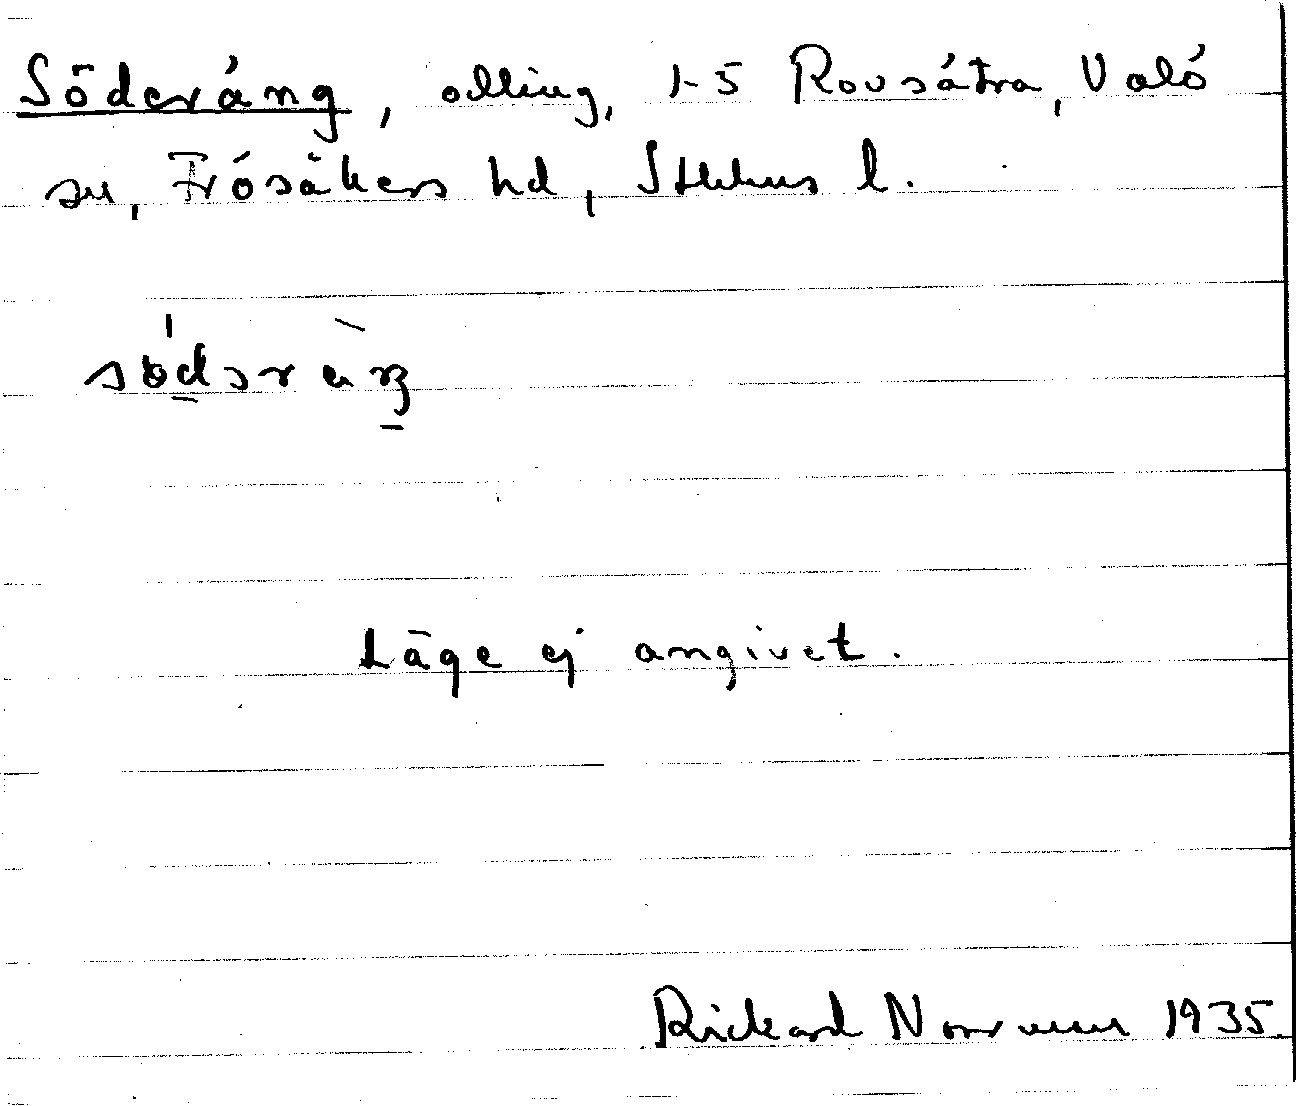 Söderäng, odling, 1-5 Rovsätra, Valö
sn, Frösåkers hd, Sthlms l.
Läge ej angivet.
Rickard 1935.